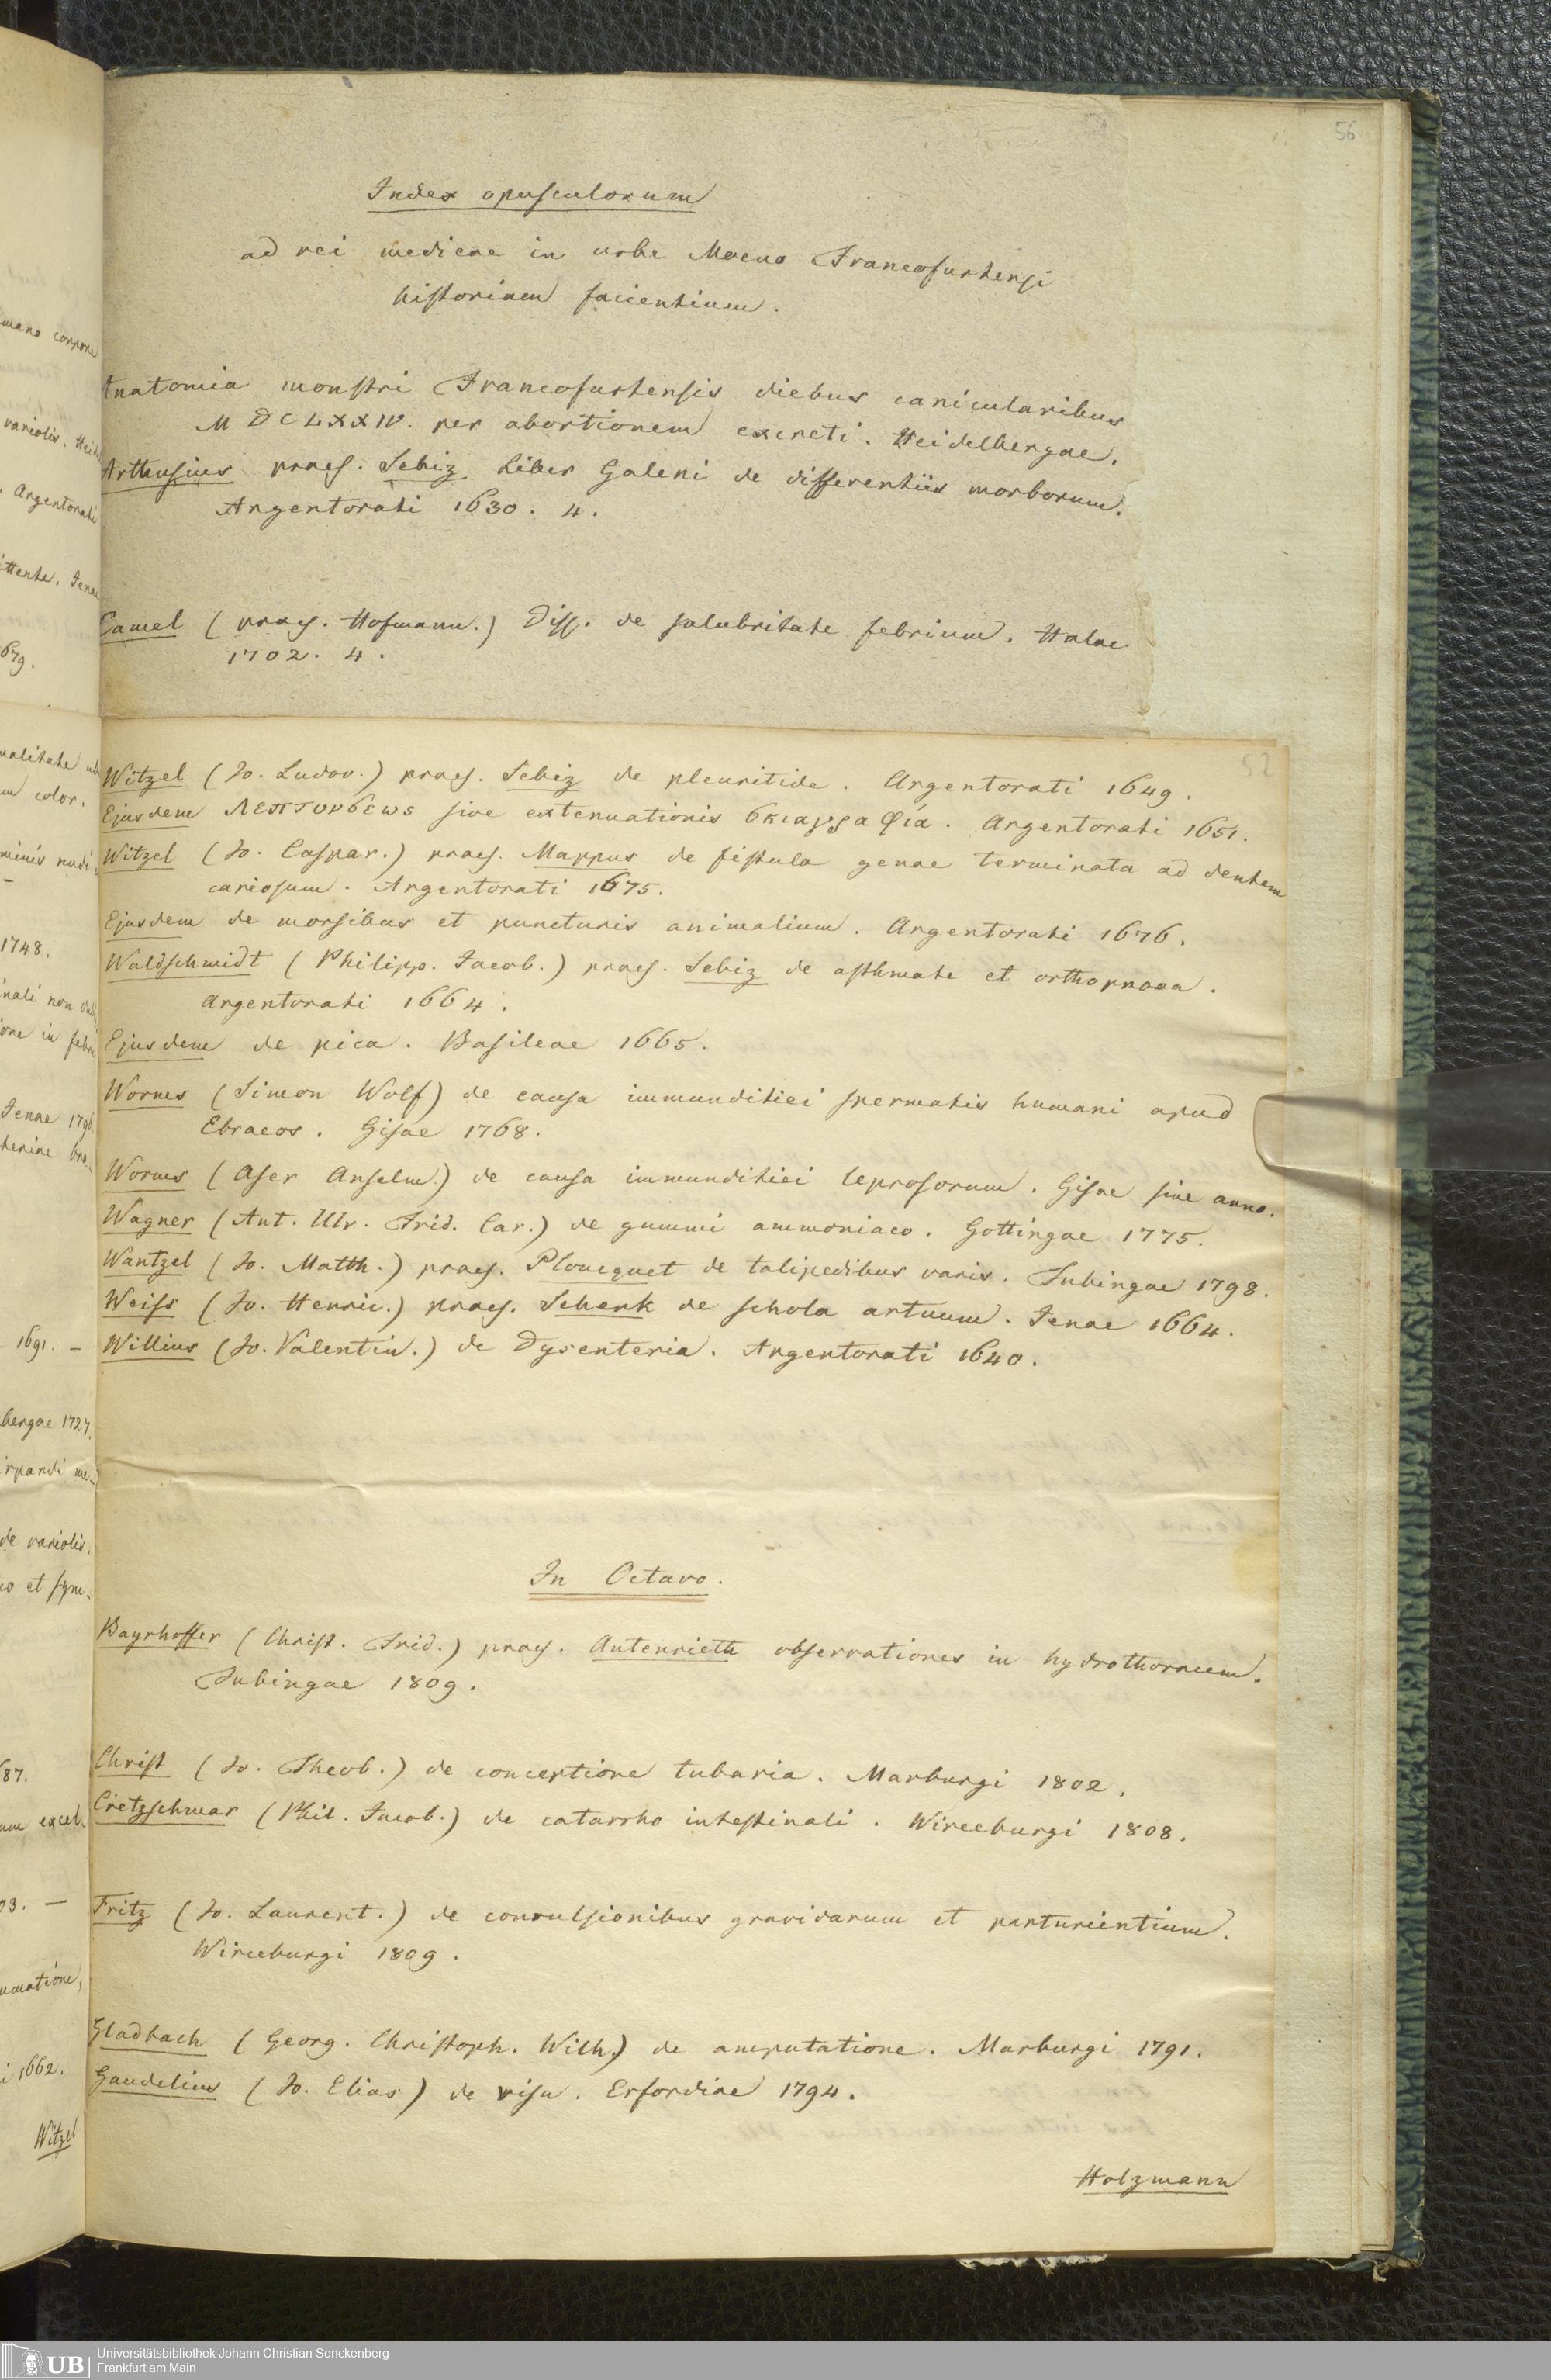 56
Index opusculorum
ad rei medicae in urbe Moeno Francofurtensi
historiam facientium.
Anatomia monstri Francofurtensis diebus canicularibus
MDCLXXIV. per abortionem excreti. Heidelbergae.
Arthusius praes. Sebiz Liber Galeni de differentiis morborum.
Argentorati 1630. 4.
Camel (praes. Hofmann.) Diss. de salubritate febrium. Halae
1702. 4.
52
Witzel (Jo. Ludov.) praes. Sebiz de pleuritide. Argentorati 1649.
Ejusdem sive extenuationis Argentorati 1651.
Witzel (Jo. Caspar.) praes. Mappus de fistula genae terminata ad dentem
cariosum. Argentorati 1675.
Ejusdem de morsibus et puncturis animalium. Argentorati 1676.
Waldschmidt (Philipp. Jacob.) praes. Sebiz de asthmate et orthopnoea.
Argentorati 1664.
Ejusdem de pica. Basileae 1665.
Worms (Simon Wolf) de causa immunditiei spermatis humani apud
Ebraeos. Gisae 1768.
Worms (Aser Anselm.) de causa immunditiei leprosorum. Gisae sine anno.
Wagner (Ant. Ulr. Frid. Car.) de gummi ammoniaco. Gottingae 1775.
Wantzel (Jo. Matth.) praes. Ploucquet de talipedibus varis. Tubingae 1798.
Weiss (Jo. Henric.) praes. Schenk de schola artuum. Jenae 1664.
Willius (Jo. Valentin.) de Dysenteria. Argentorati 1640.
In Octavo.
Bayrhoffer (Christ. Frid.) praes. Autenrieth observationes in hydrothoracem.
Tubingae 1809.
Christ (Jo. Theob.) de conceptione tubaria. Marburgi 1802.
Cretzschmar (Phil. Jacob.) de catarrho intestinali. Wirceburgi 1808.
Fritz (Jo. Laurent.) de convulsionibus gravidarum et parturientium.
Wirceburgi 1809.
Gladbach (Georg. Christoph. Wilh.) de amputatione. Marburgi 1791.
Gaudelius (Jo. Elias) de risu. Erfordiae 1794.
Holzmann
UB
Universitätsbibliothek Johann Christian Senckenberg
Frankfurt am Main